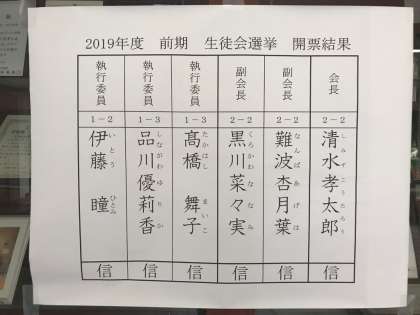 2019年度 前期 生徒会選挙 開票結果
会長
2−2
清水孝太郎
しみずこうたろう
信
副会長
2−2
難波杏月葉
なんばあげは
信
副会長
2−2
黒川菜々実
くろかわななみ
信
執行委員
1−3
髙橋 舞子
たかはし まいこ
信
執行委員
1−3
品川優莉香
しながわゆりか
信
執行委員
1−2
伊藤 瞳
いとう ひとみ
信